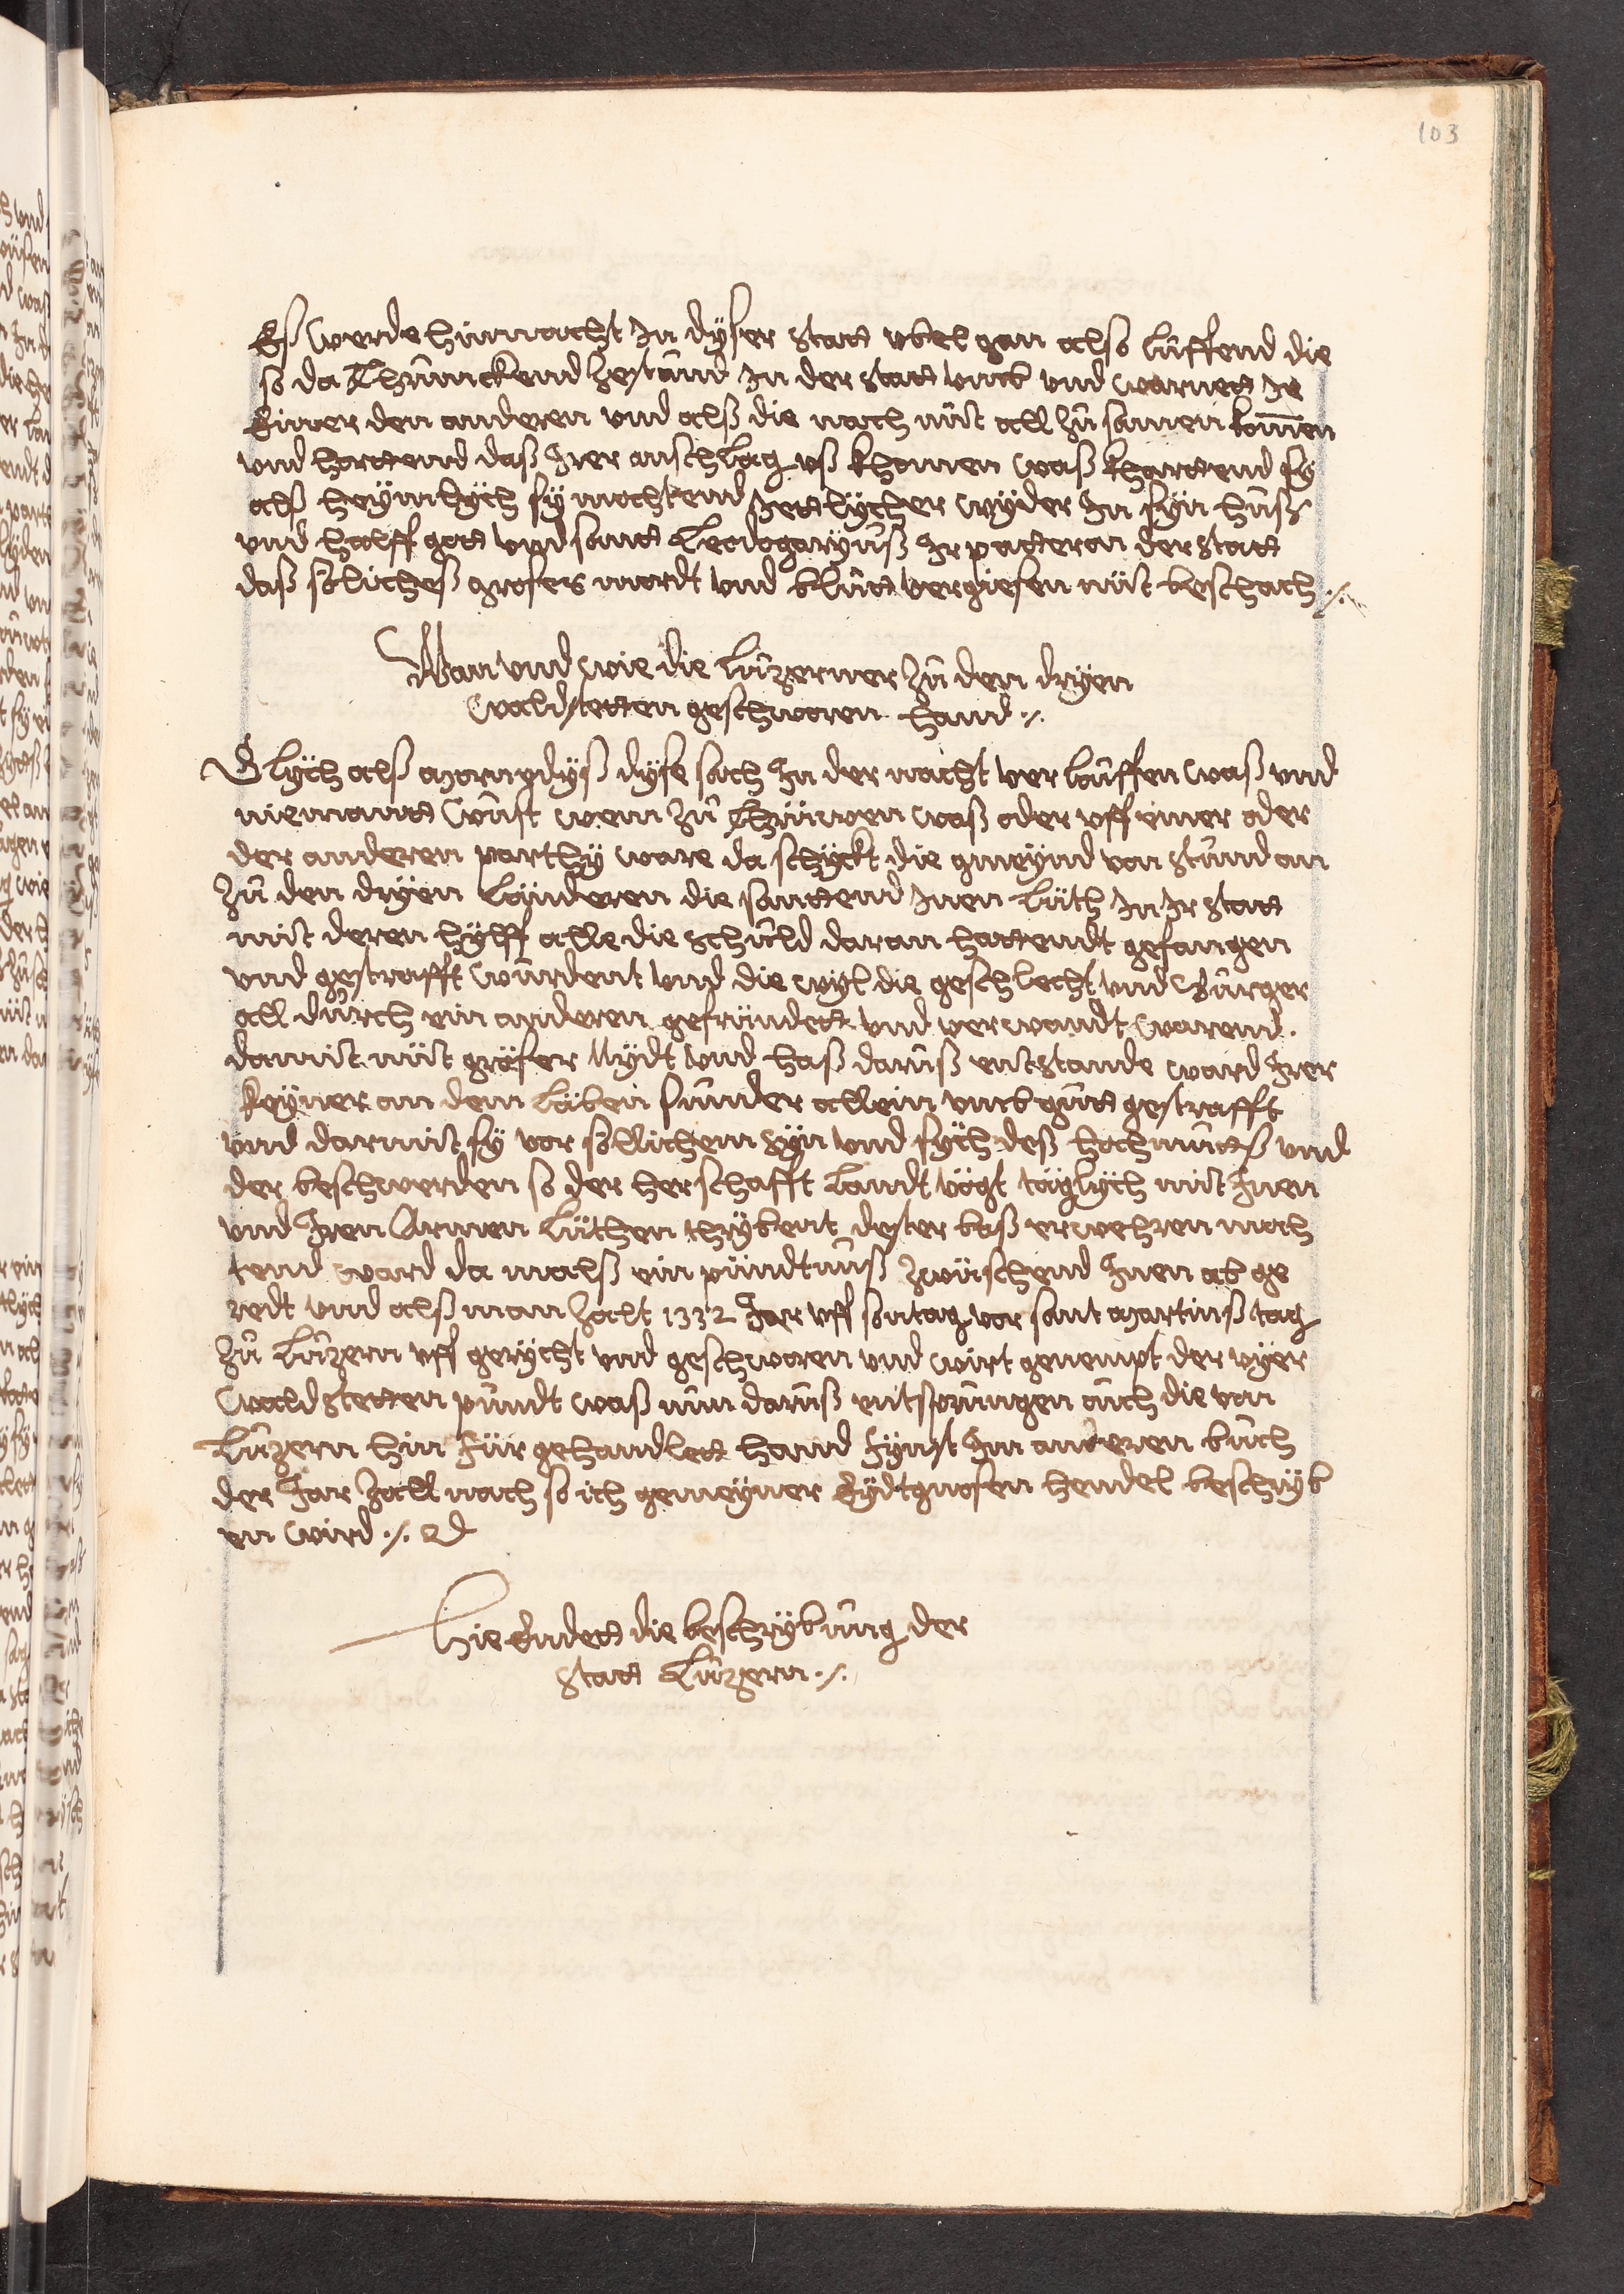 103
Es werde hinnacht In dyser statt übel gan also lüffend die
so da thrunckend zestund In der statt umb und warnett Je
Einer den anderen und alß die nach nüt all zu samen komen
und horttend daß Irer anschlag uß khomen waß khartend sy
alß heÿmlÿch sy mochtend Jettlÿcher wÿder In sÿn huß
und halff gott und sant Leodogarÿuß Ir patteran der statt
daß sölicheß groses mordt und blutt vergiesen nüt beschach ./.
Wan und wie die Lutzerner zu den drÿen
waldstetten geschworen hand ./.
Glÿch alß morngdÿß dÿse sach In der nacht verlauffen waß und
niemantt wust wem zu thrüwen waß oder uff einer oder
der anderen parthÿ ware da schÿckt die gmeÿnd von stund an
zu den drÿen Länderen die santtend Inen Lüth In Ir statt
mit deren hÿlff alle die schuld daran hattendt gefangen
und gestrafft wurdent und die wÿl die geschlecht und Burger
all durch ein anderen gefründett und verwandt warend.
damit nüt gröser Nÿdt und haß daruß entstande ward Irer
keÿner an dem Läben sunder allein umb gutt gestrafft
und darmit sÿ vor söllichem sÿn und sÿch deß hochmuttß und
der beschwerden so der herschafft Landtvögt täglÿch mit Inen
und Iren Armen Lüthen thrÿbent dester baß erwehren moch
tend ward da malß ein pündtnuß zwüschend Inen ab ge
redt und alß man zalt 1332 Jar uff sontag vor sant Martinß tag
zu Lutzern uff gerÿcht und geschworen und wirt genempt der vÿer
waldstetten pundt waß nun daruß entsprungen auch die von
Lutzern hin für gehandlett hand fÿnst Im anderen buch
der Jar zall nach so ich gemeÿner Eÿdtgnosen hendel beschrÿb
en wird ./.
Hie Endett die beschrÿbung der
statt Lutzern ./.